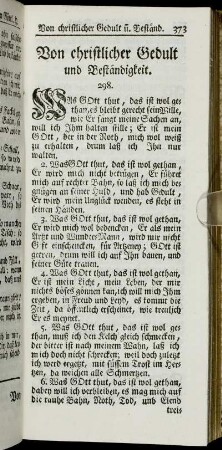 Von christlicher Gedult u. Beständ. 373
Von christlicher Gedult
und Beständigkeit.
298.
WAs GOtt thut, das ist wol ge-
than, es bleibt gerecht sein Wille,
wie Er fängt meine Sachen an,
will ich Ihm halten stille; Er ist mein
GOtt, der in der Noth, mich wol weiß
zu erhalten, drum laß ich Ihn nur
walten.
2. Was GOtt thut, das ist wol gethan,
Er wird mich nicht betrügen, Er führet
mich auf rechter Bahn, so laß ich mich be-
gnügen an seiner Huld, und hab Gedult,
Er wird mein Unglück wenden, es steht in
seinen Händen.
3. Was GOtt thut, das ist wol gethan,
Er wird mich wol bedencken, Er als mein
Artzt und Wunder-Mann, wird mir nicht
Gift einschencken, für Artzeney; GOtt ist
getreu, drum will ich auf Ihn bauen, und
seiner Güte trauen.
4. Was GOtt thut, das ist wol gethan,
Er ist mein Licht, mein Leben, der mir
nichts böses gönnen kan, ich will mich Ihm
ergeben, in Freud und Leyd, es kommt die
Zeit, da öffentlich erscheinet, wie treulich
Er es meynet.
5. Was GOtt thut, das ist wol ge-
than, muß ich den Kelch gleich schmecken,
der bitter ist nach meinem Wahn, laß ich
mich doch nicht schrecken; weil doch zuletzt
ich werd ergetzt, mit süssem Trost im Her-
zen, da weichen alle Schmertzen.
6. Was GOtt thut, das ist wol gethan,
dabey will ich verbleiben, es mag mich auf
die rauhe Bahn, Noth, Tod, und Elend
treib